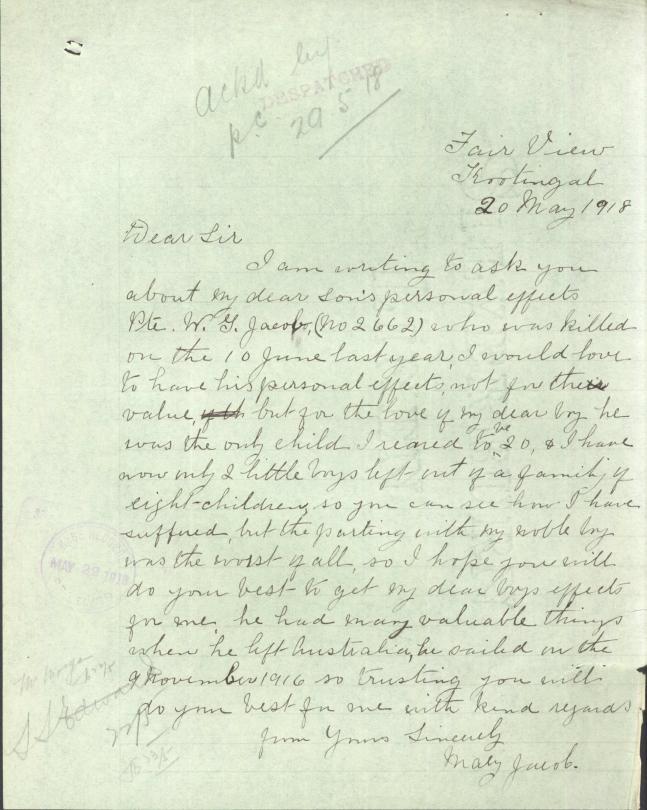 ackd by
DESPATCHED
p.c. 29 5 18
Fair View
Kootingal
20 May 1918
Dear Sir
I am writing to ask you
about my dear son's personal effects
Pte. W. G. Jacob, (No 2662) who was killed
on the 10 June last year, I would love
to have his personal effects, not for their
value, but for the love of my dear boy he
was the only child I reared to be 20, & I have
now only 2 little boys left out of a family of
eight children, so you can see how I have
suffered, but the parting with my noble boy
was the worst of all, so I hope you will
do your best to get my dear boys effects
for me, he had many valuable things
when he left Australia, he sailed on the
9 November 1916 so trusting you will
do your best for me with kind regards
from Yours Sincerely
Mary Jacob.
MAY 29 1918